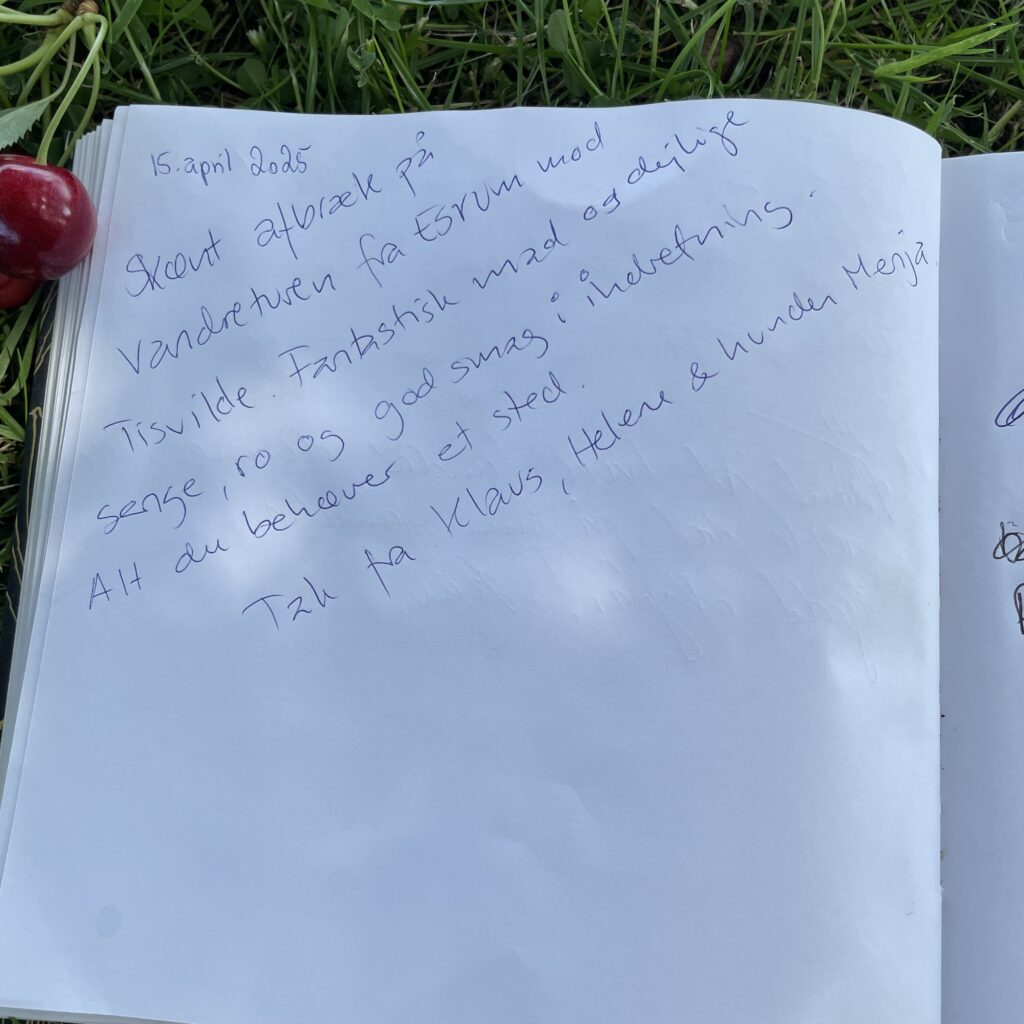 15. april 2025
Skønt afbræk på
vandreturen fra ESRUM mod
Tisvilde. Fantastisk mad og dejlige
senge, ro og god smag i indretning.
Alt du behøver et sted.
Tak fra Klaus, Helene & hunden Menja.